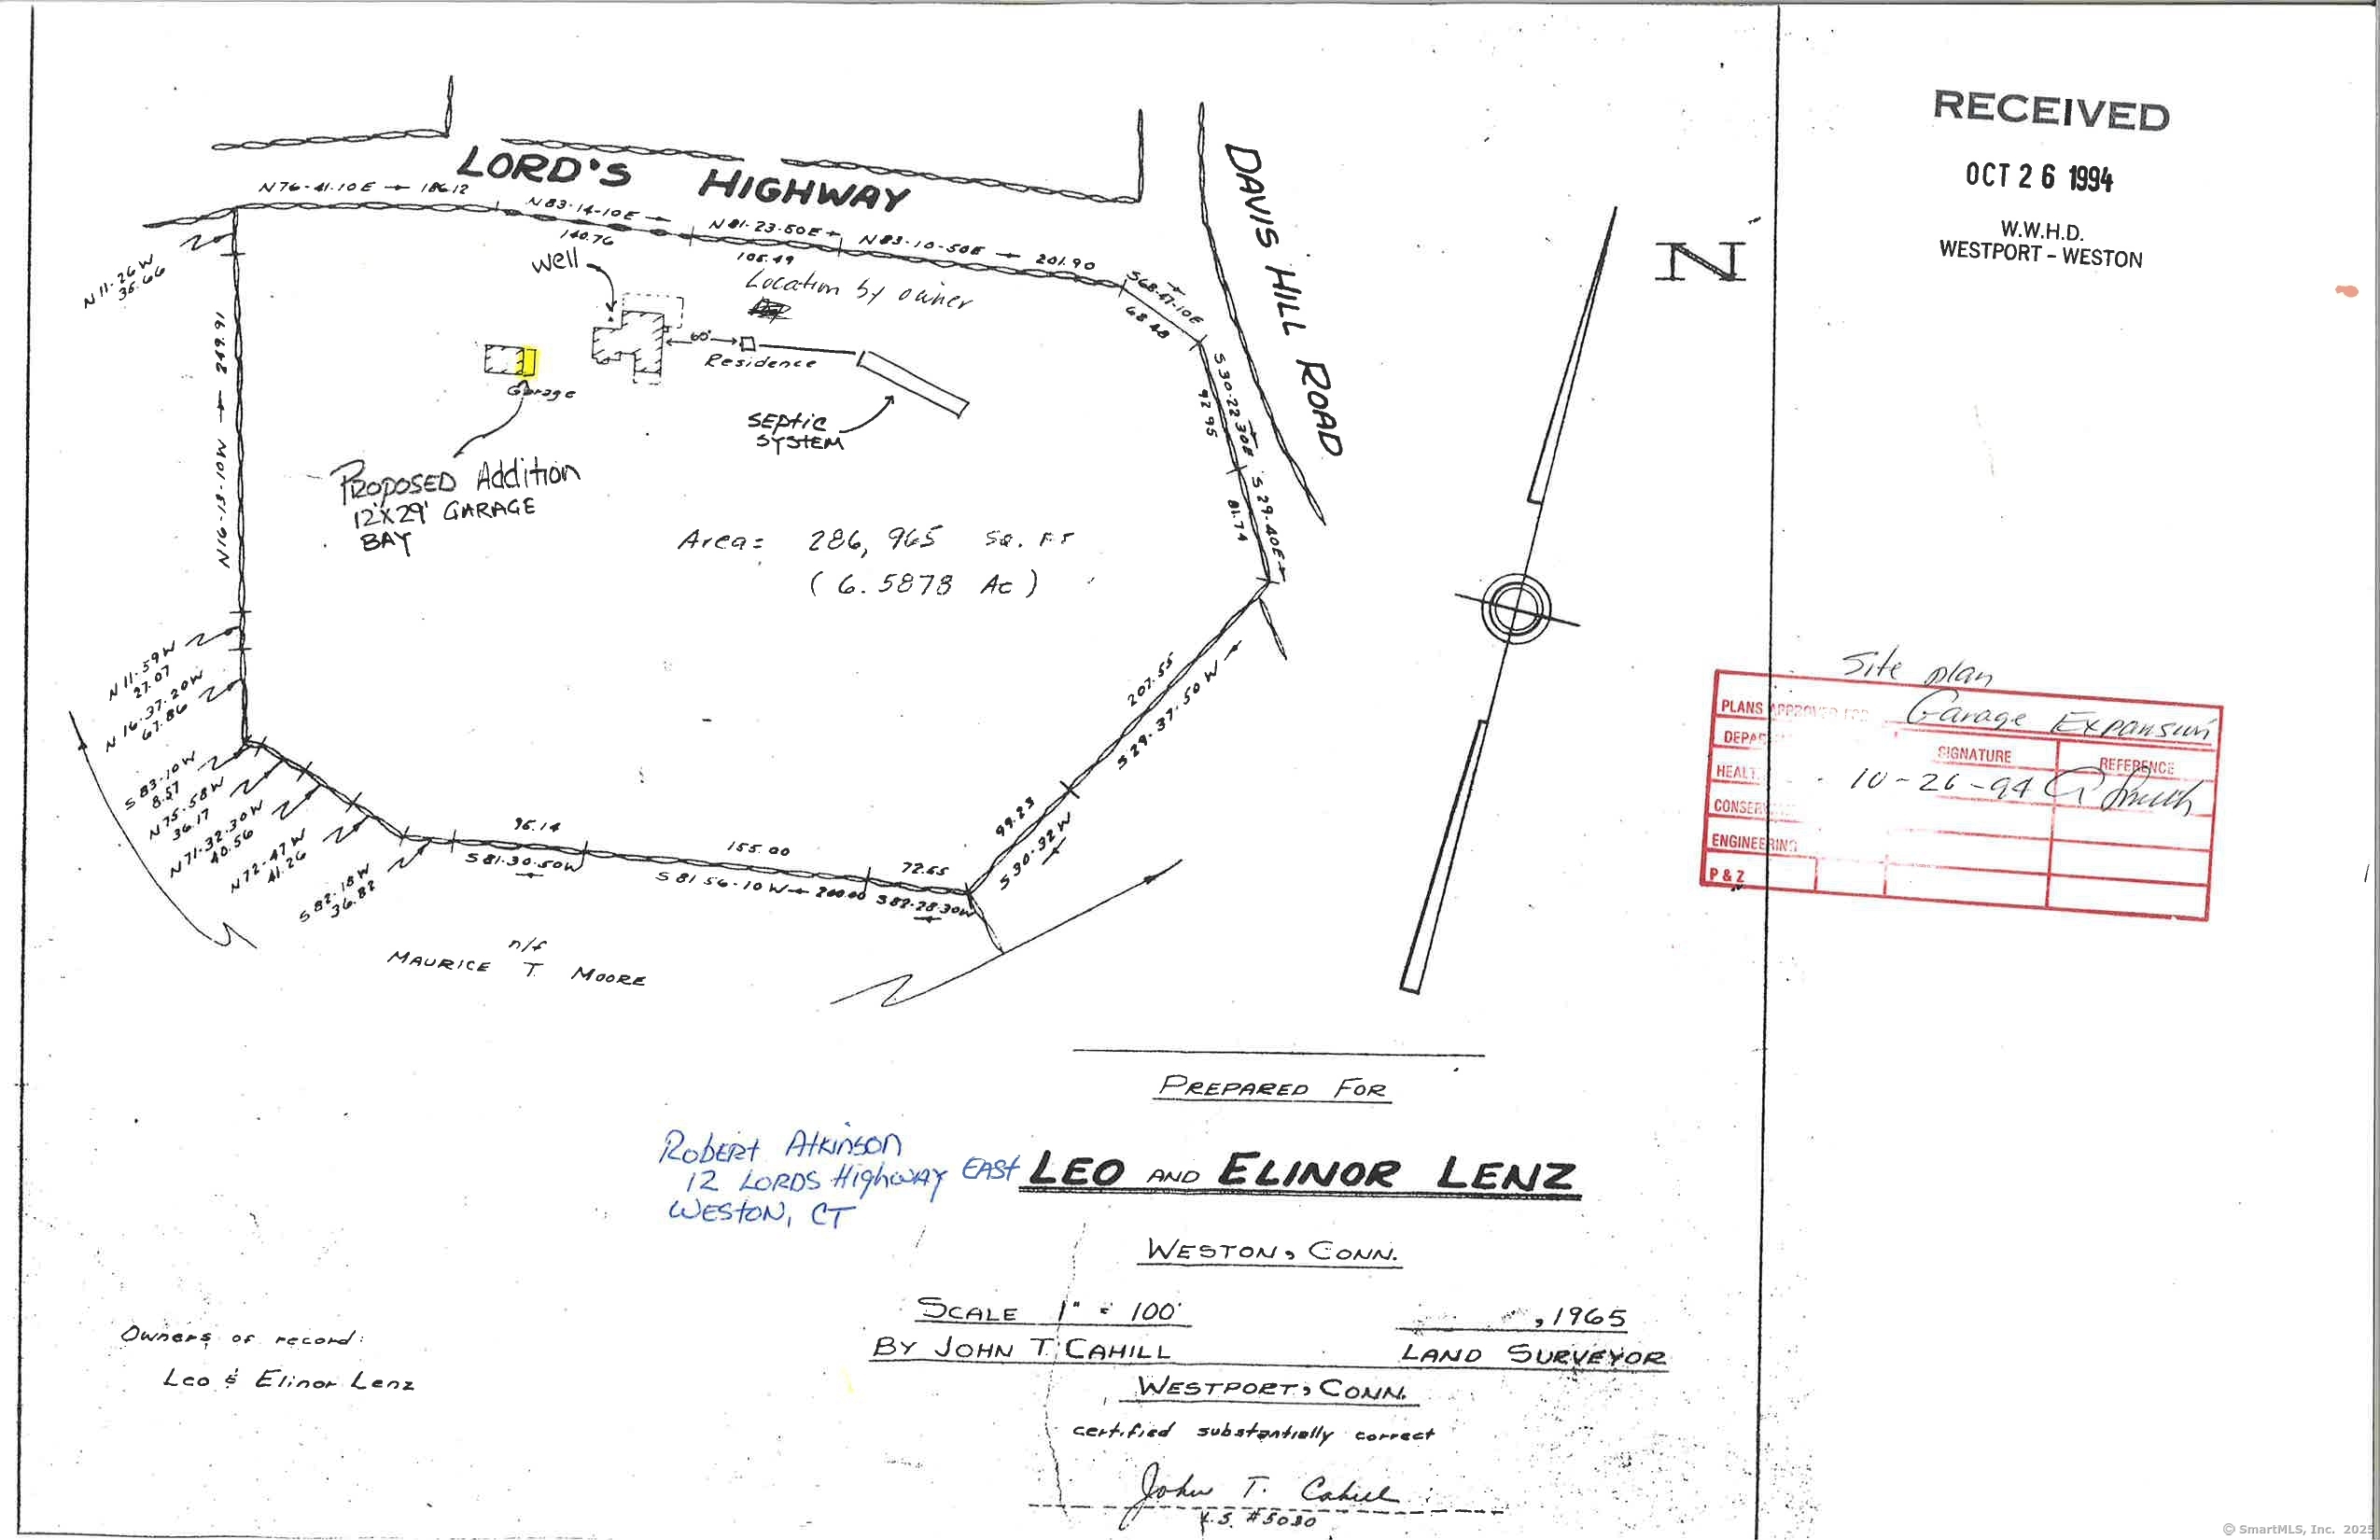 RECEIVED
OCT 26 1994
W.W.H.D.
WESTPORT - WESTON
LORD'S HIGHWAY
DAVIS HILL ROAD
N
N76-41-10E 186.12
N83-14-10E
140.76
N81-23-50E
N83-10-50E
201.90
S68-47-10E
68.48
S30-22-30E
92.95
S29-40E
81.74
207.55
S29-37-50W
99.23
S30-32W
N11-26W
35.66
N16-13-10W 249.91
N11-59W
27.07
N16-37-20W
67.86
S83-10W
8.57
N75-58W
36.17
N71-32-30W
40.56
N72-47W
41.26
S82-18W
36.82
S81-30-50W
155.00
S81 56-10W 200.00
72.65
S82-28-30W
well
Location by owner
60'
Residence
Garage
SEPTIC
SYSTEM
PROPOSED Addition
12'X29' GARAGE
BAY
Area= 286,965 Sq. Ft
(6.5878 Ac)
n/f
MAURICE T. MOORE
Site plan
PLANS APPROVED FOR Garage Expansion
SIGNATURE REFERENCE
10-26-94
ENGINEERING
P & Z
PREPARED FOR
Robert Atkinson
12 LORDS Highway EAST
WESTON, CT
LEO AND ELINOR LENZ
WESTON, CONN.
SCALE 1" = 100'
, 1965
BY JOHN T. CAHILL
LAND SURVEYOR
WESTPORT, CONN.
certified substantially correct
John T. Cahill
Owners of record:
Leo & Elinor Lenz
© SmartMLS, Inc. 2025